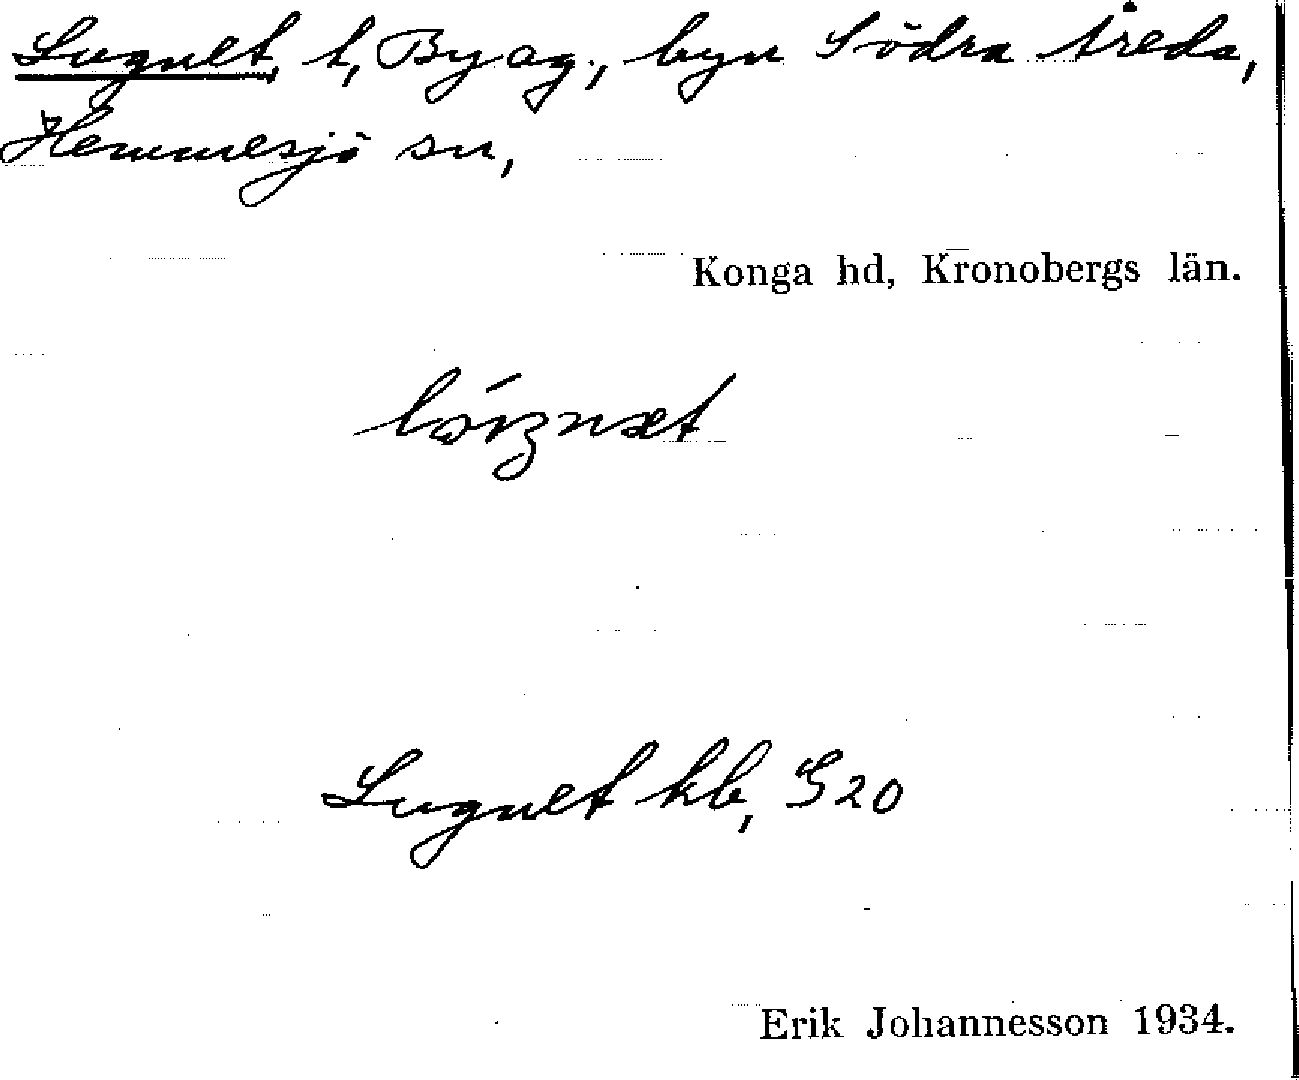 Lugnet, t, By äg., byn Södra Åreda,
Hemmesjö sn,
Konga hd, Kronobergs län.
Lugnet kb, G20
Erik Johannesson 1934.